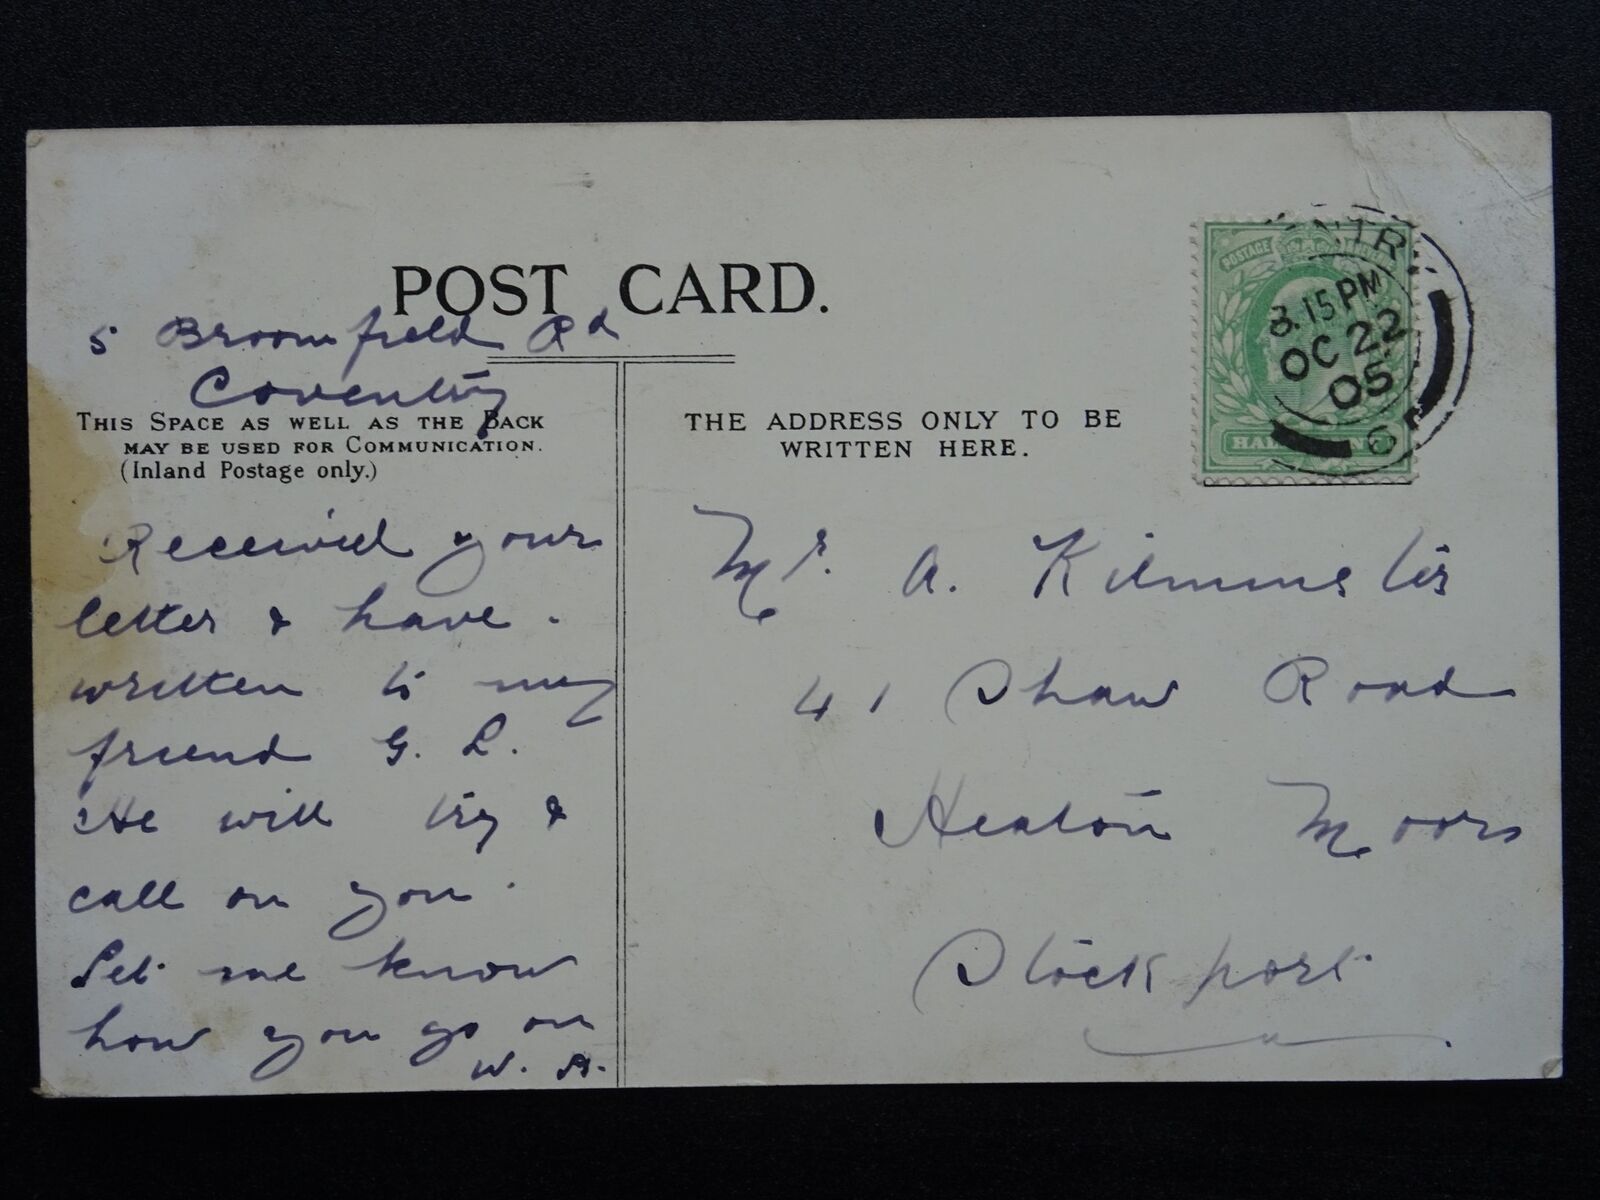 POST CARD.
5 Broomfield Rd
Coventry
THIS SPACE AS WELL AS THE BACK
MAY BE USED FOR COMMUNICATION.
(Inland Postage only.)
Received your
letter & have
written to my
friend G. L.
He will try &
call on you.
Let me know
how you go on
W. A.
THE ADDRESS ONLY TO BE
WRITTEN HERE.
POSTAGE
8.15 PM
OC 22
05
Mr. A. Kilminster
41 Shaw Road
Heaton Moors
Stockport